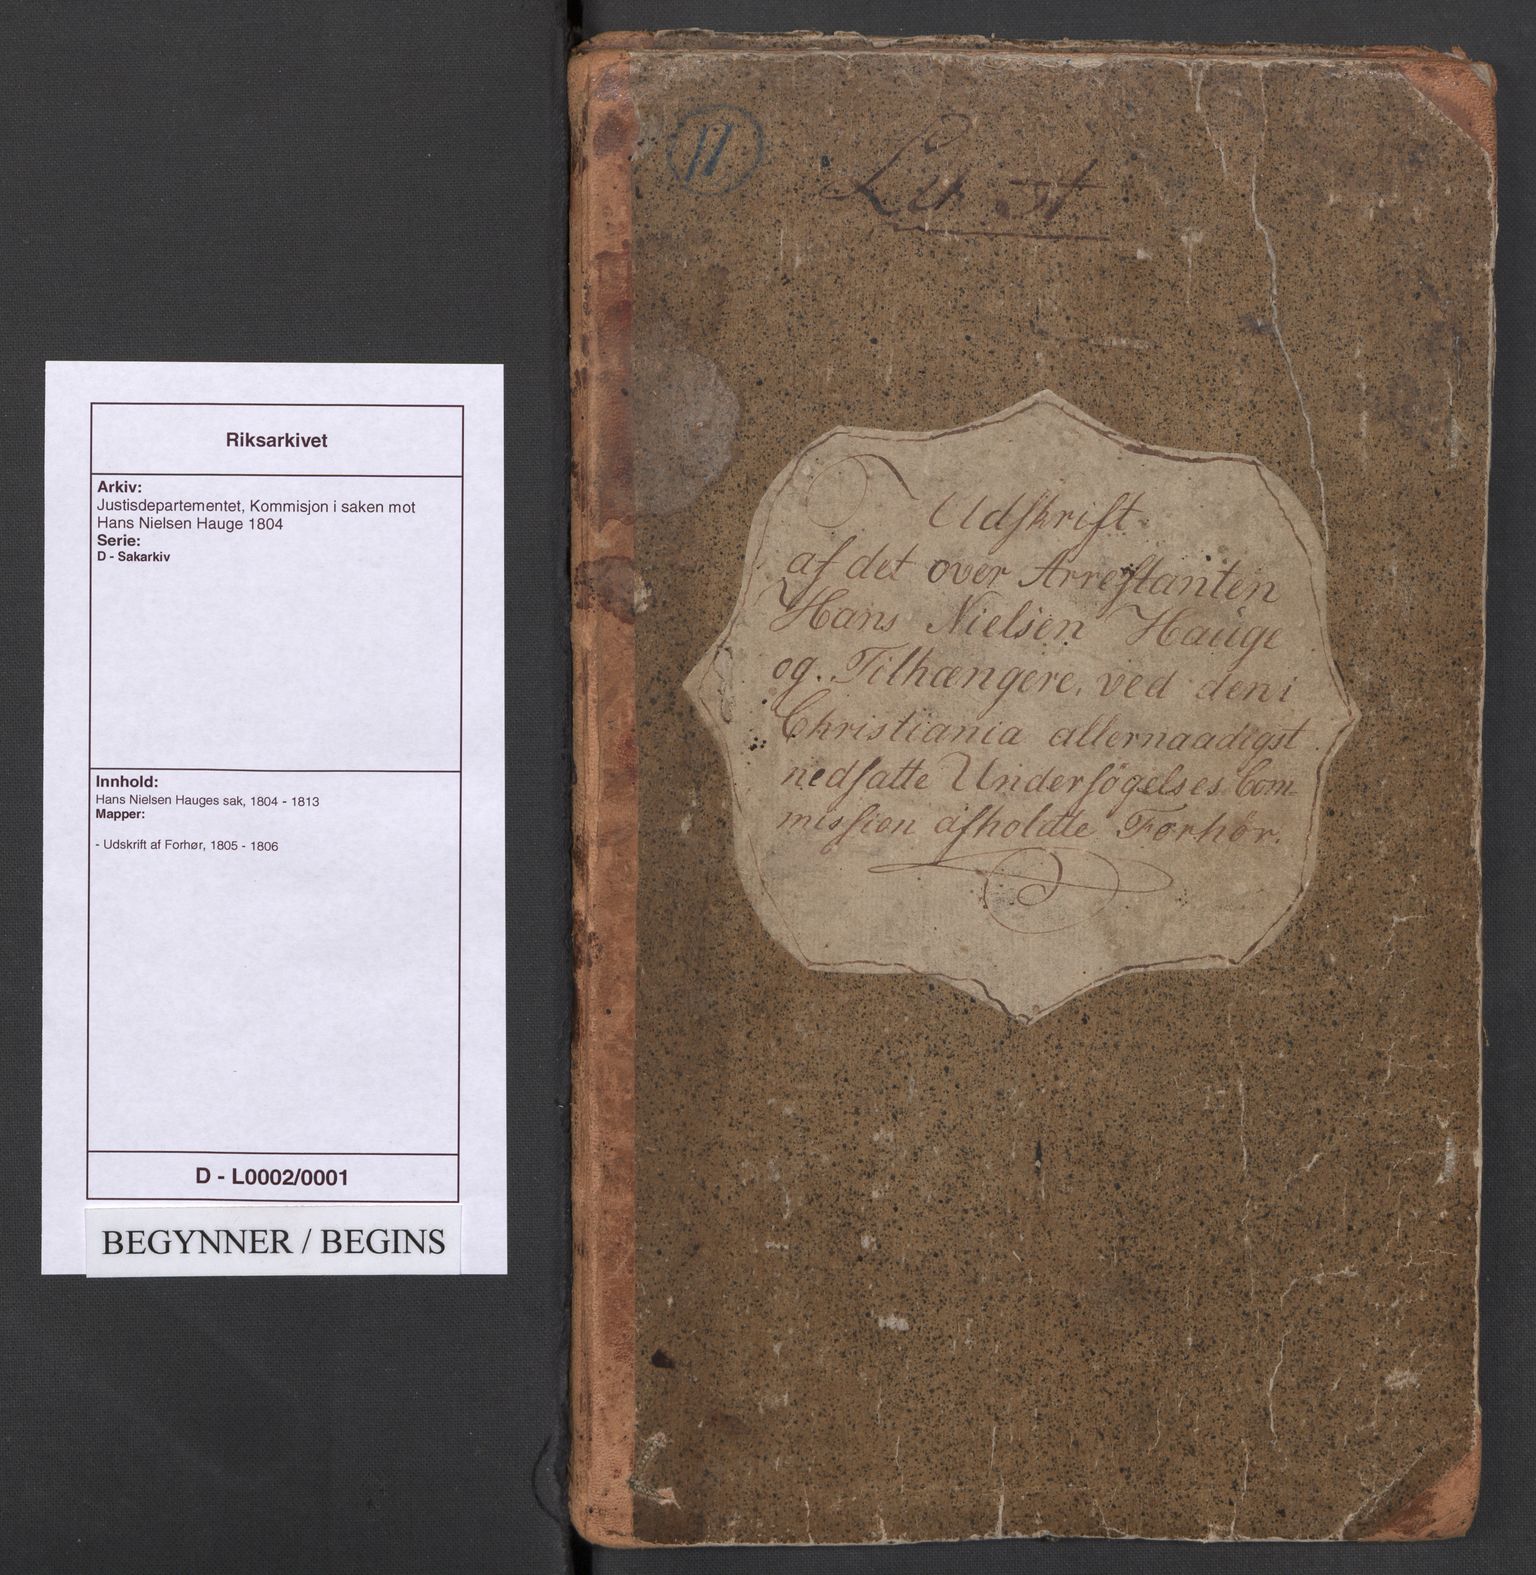 Riksarkivet
Arkiv:
Justisdepartementet, Kommisjon i saken mot
Hans Nielsen Hauge 1804
Serie:
D - Sakarkiv
Innhold:
Hans Nielsen Hauges sak, 1804 - 1813
Mapper:
- Udskrift af Forhør, 1805 - 1806
D - L0002/0001
BEGYNNER / BEGINS
11
Litr. A.
Udskrift
af det over Arrestanten
Hans Nielsen Hauge
og Tilhængere, ved den i
Christiania allernaadigst
nedsatte Undersøgelses Com-
mission afholdte Forhør.